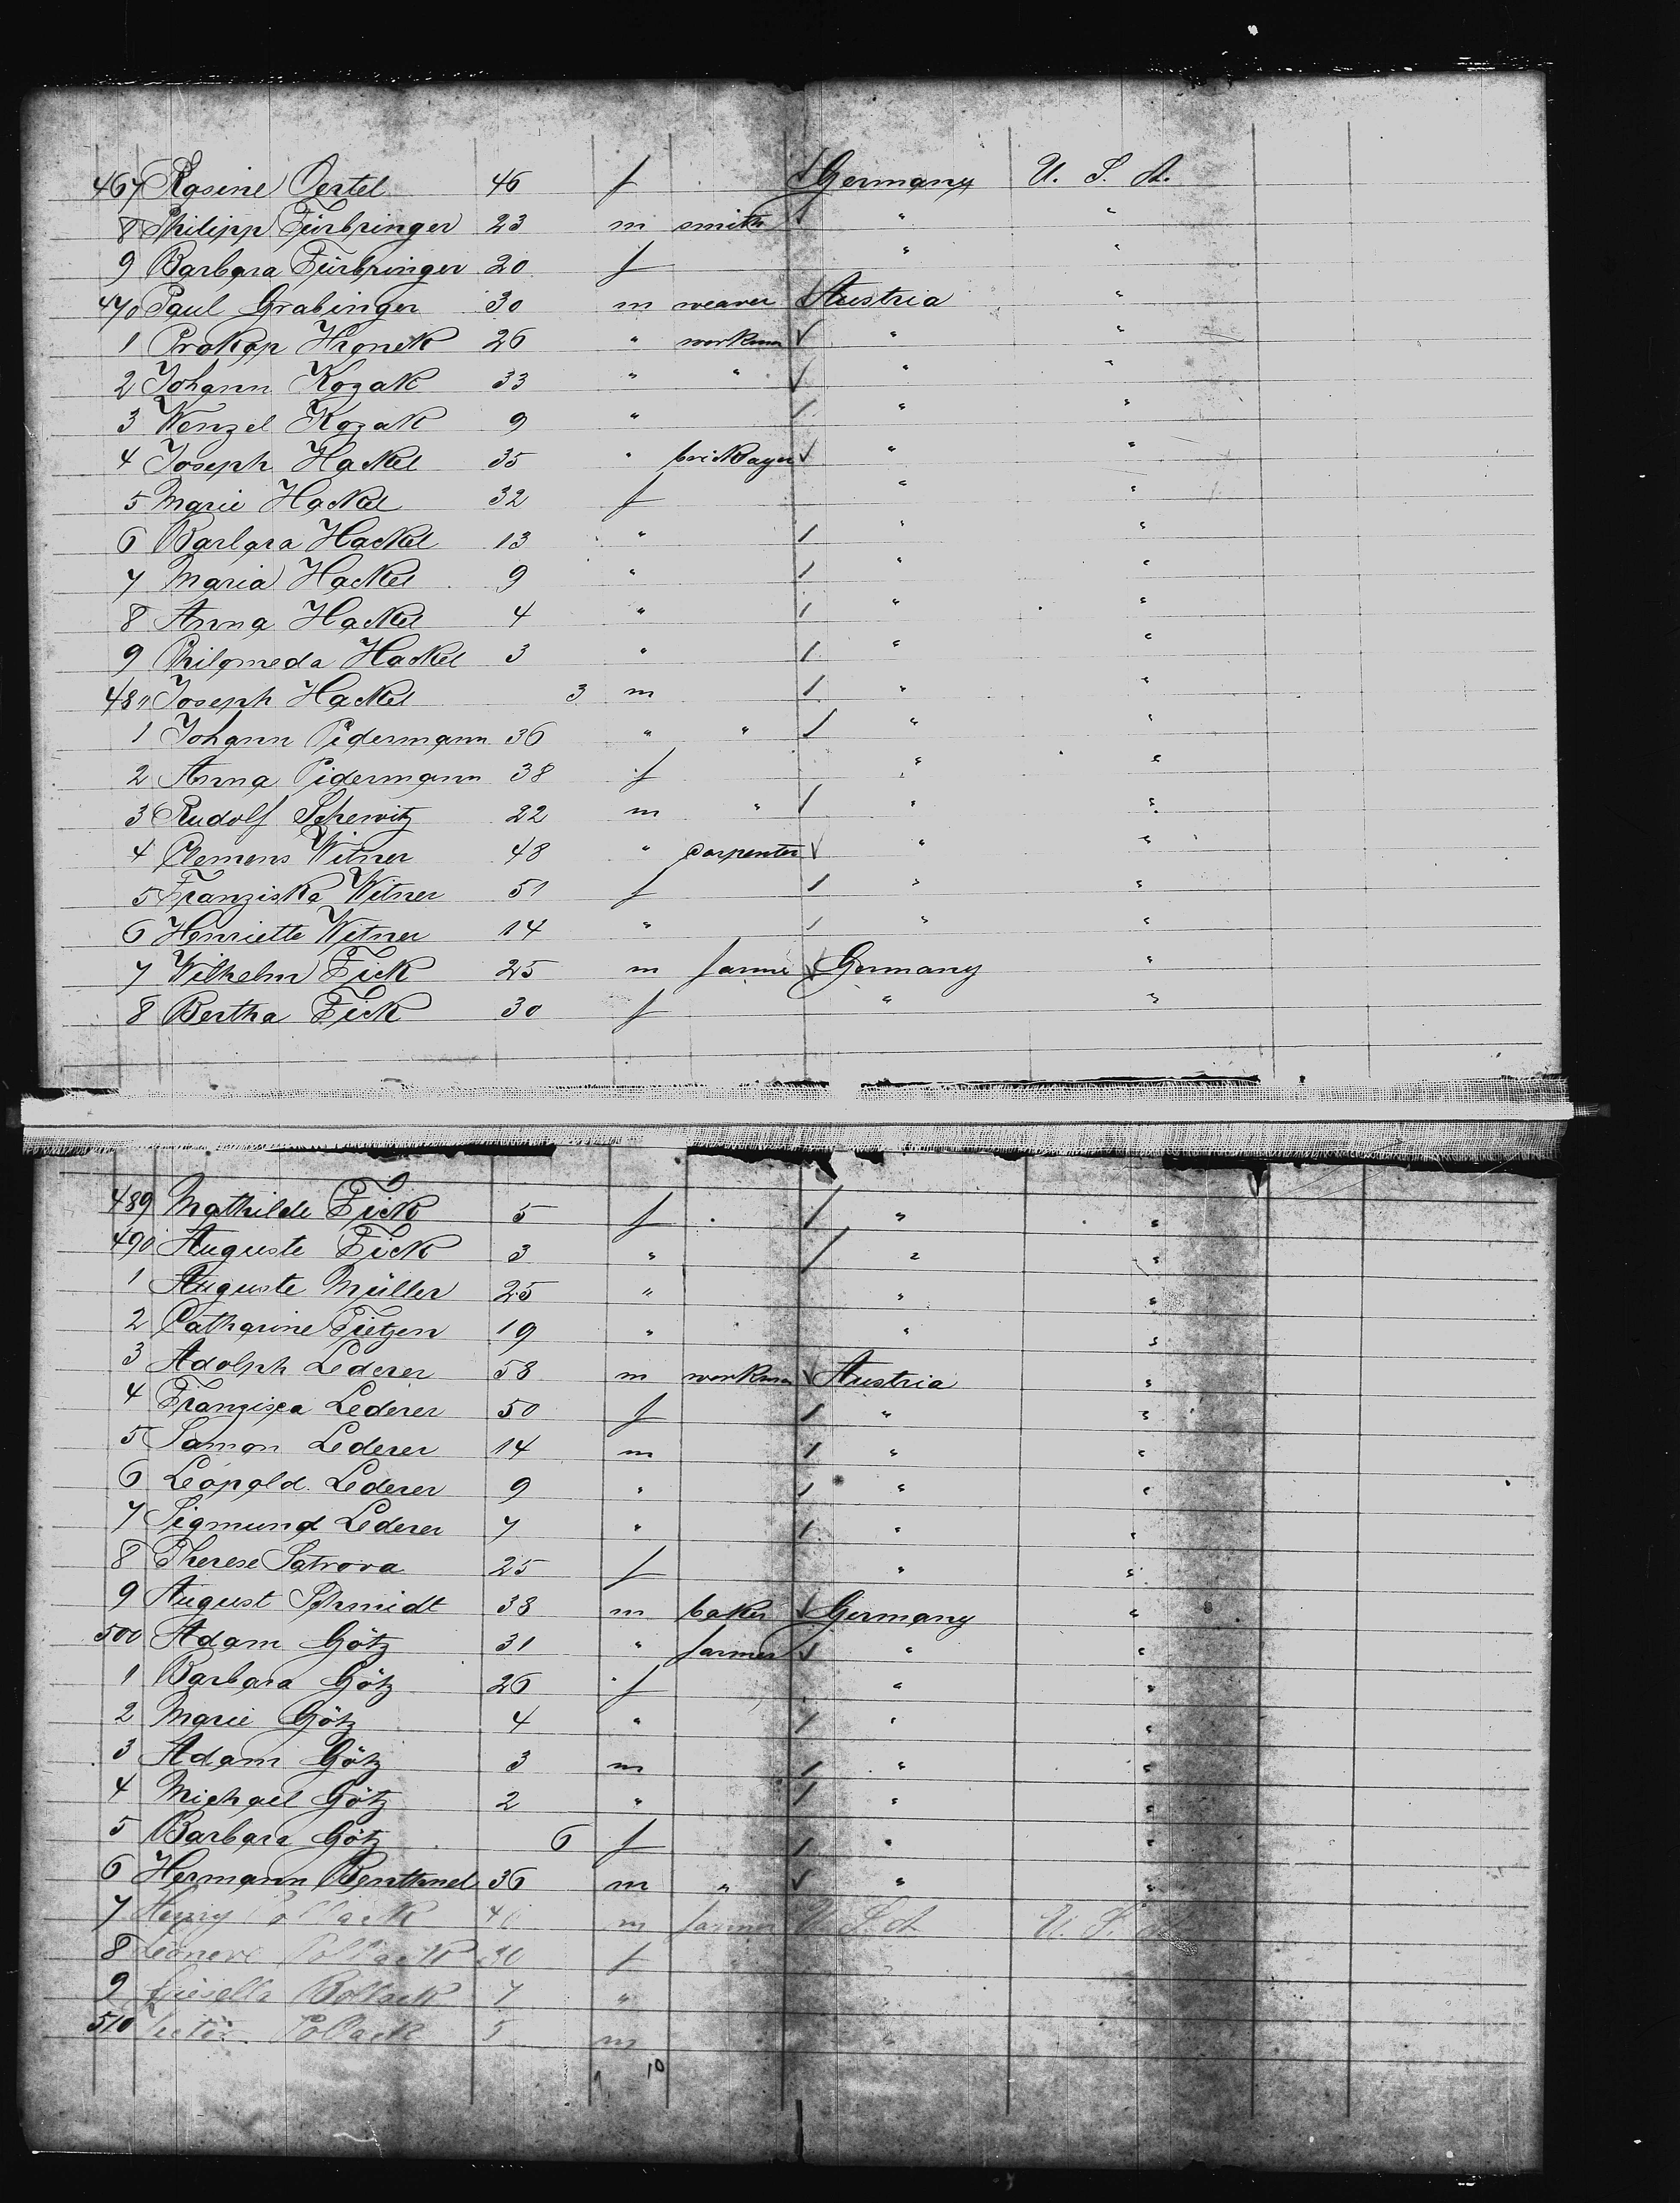 467 Rosine Oertel 46 f Germany U. S. A.
8 Philipp Fürbringer 23 m smith " "
9 Barbara Fürbringer 20 f " "
470 Paul Grabinger 30 m weaver Austria "
1 Prokop Hronek 26 " workman " "
2 Johann Kozak 33 " " " "
3 Wenzel Kozak 9 " " "
4 Joseph Hackel 35 " bricklayer " "
5 Marie Hackel 32 f " "
6 Barbara Hackel 13 " " "
7 Maria Hackel 9 " " "
8 Anna Hackel 4 " " "
9 Philomeda Hackel 3 " " "
480 Joseph Hackel 3 m " "
1 Johann Pidermann 36 " " " "
2 Anna Pidermann 38 f " "
3 Rudolf Schewitz 22 m " " "
4 Clemens Witner 48 " carpenter " "
5 Franziska Witner 51 f " "
6 Henriette Witner 14 " " "
7 Wilhelm Fick 25 m farmer Germany "
8 Bertha Fick 30 f " "
489 Mathilde Fick 5 f " "
490 Auguste Fick 3 " " "
1 Auguste Müller 25 " " "
2 Catharine Tietzen 19 " " "
3 Adolph Lederer 58 m workman Austria "
4 Franzisca Lederer 50 f " "
5 Samon Lederer 14 m " "
6 Leopold Lederer 9 " " "
7 Sigmund Lederer 7 " " "
8 Therese Satrova 25 f " "
9 August Schmidt 38 m baker Germany "
500 Adam Götz 31 " farmer " "
1 Barbara Götz 26 f " "
2 Marie Götz 4 " " "
3 Adam Götz 3 m " "
4 Michael Götz 2 " " "
5 Barbara Götz 6 f " "
6 Hermann Benthnel 36 m " " "
7 Henry Pollack m farmer U. S. A. U. S. A.
8 Pollack 30 f "
9 Giesella Pollack 7 " "
510 Pollack 5 m "
10